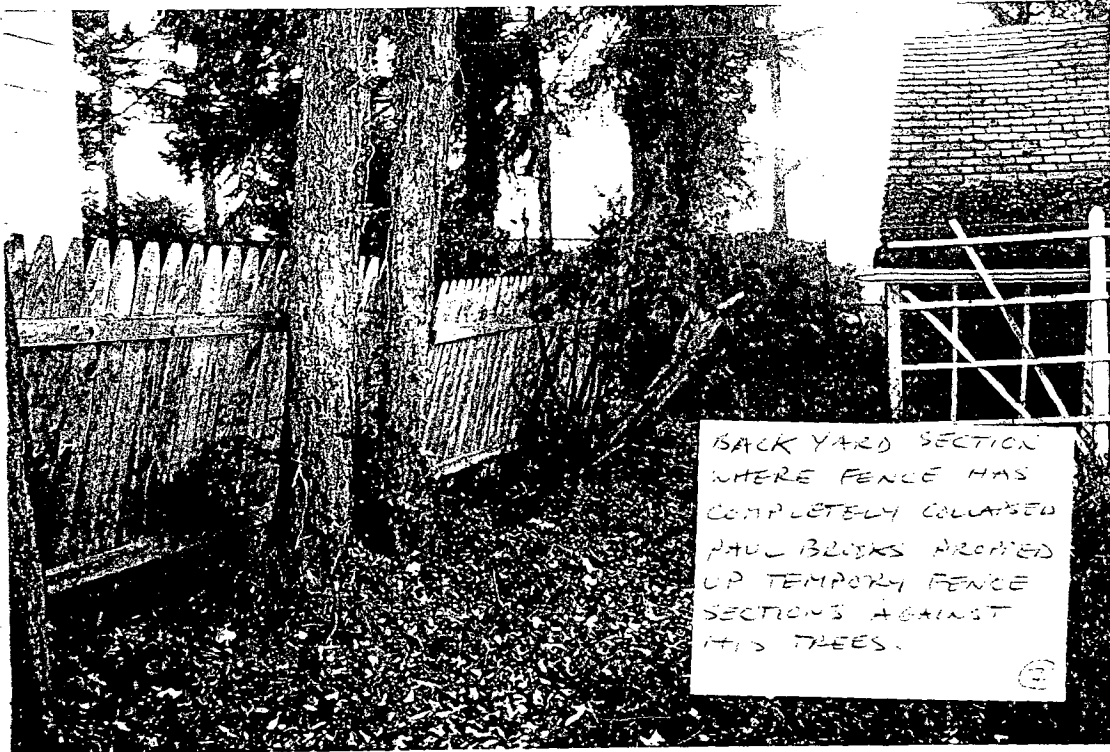 BACK YARD SECTION
WHERE FENCE HAS
COMPLETELY COLLAPSED
PAUL PROPPED
UP TEMPORY FENCE
SECTIONS AGAINST
HIS TREES.
2